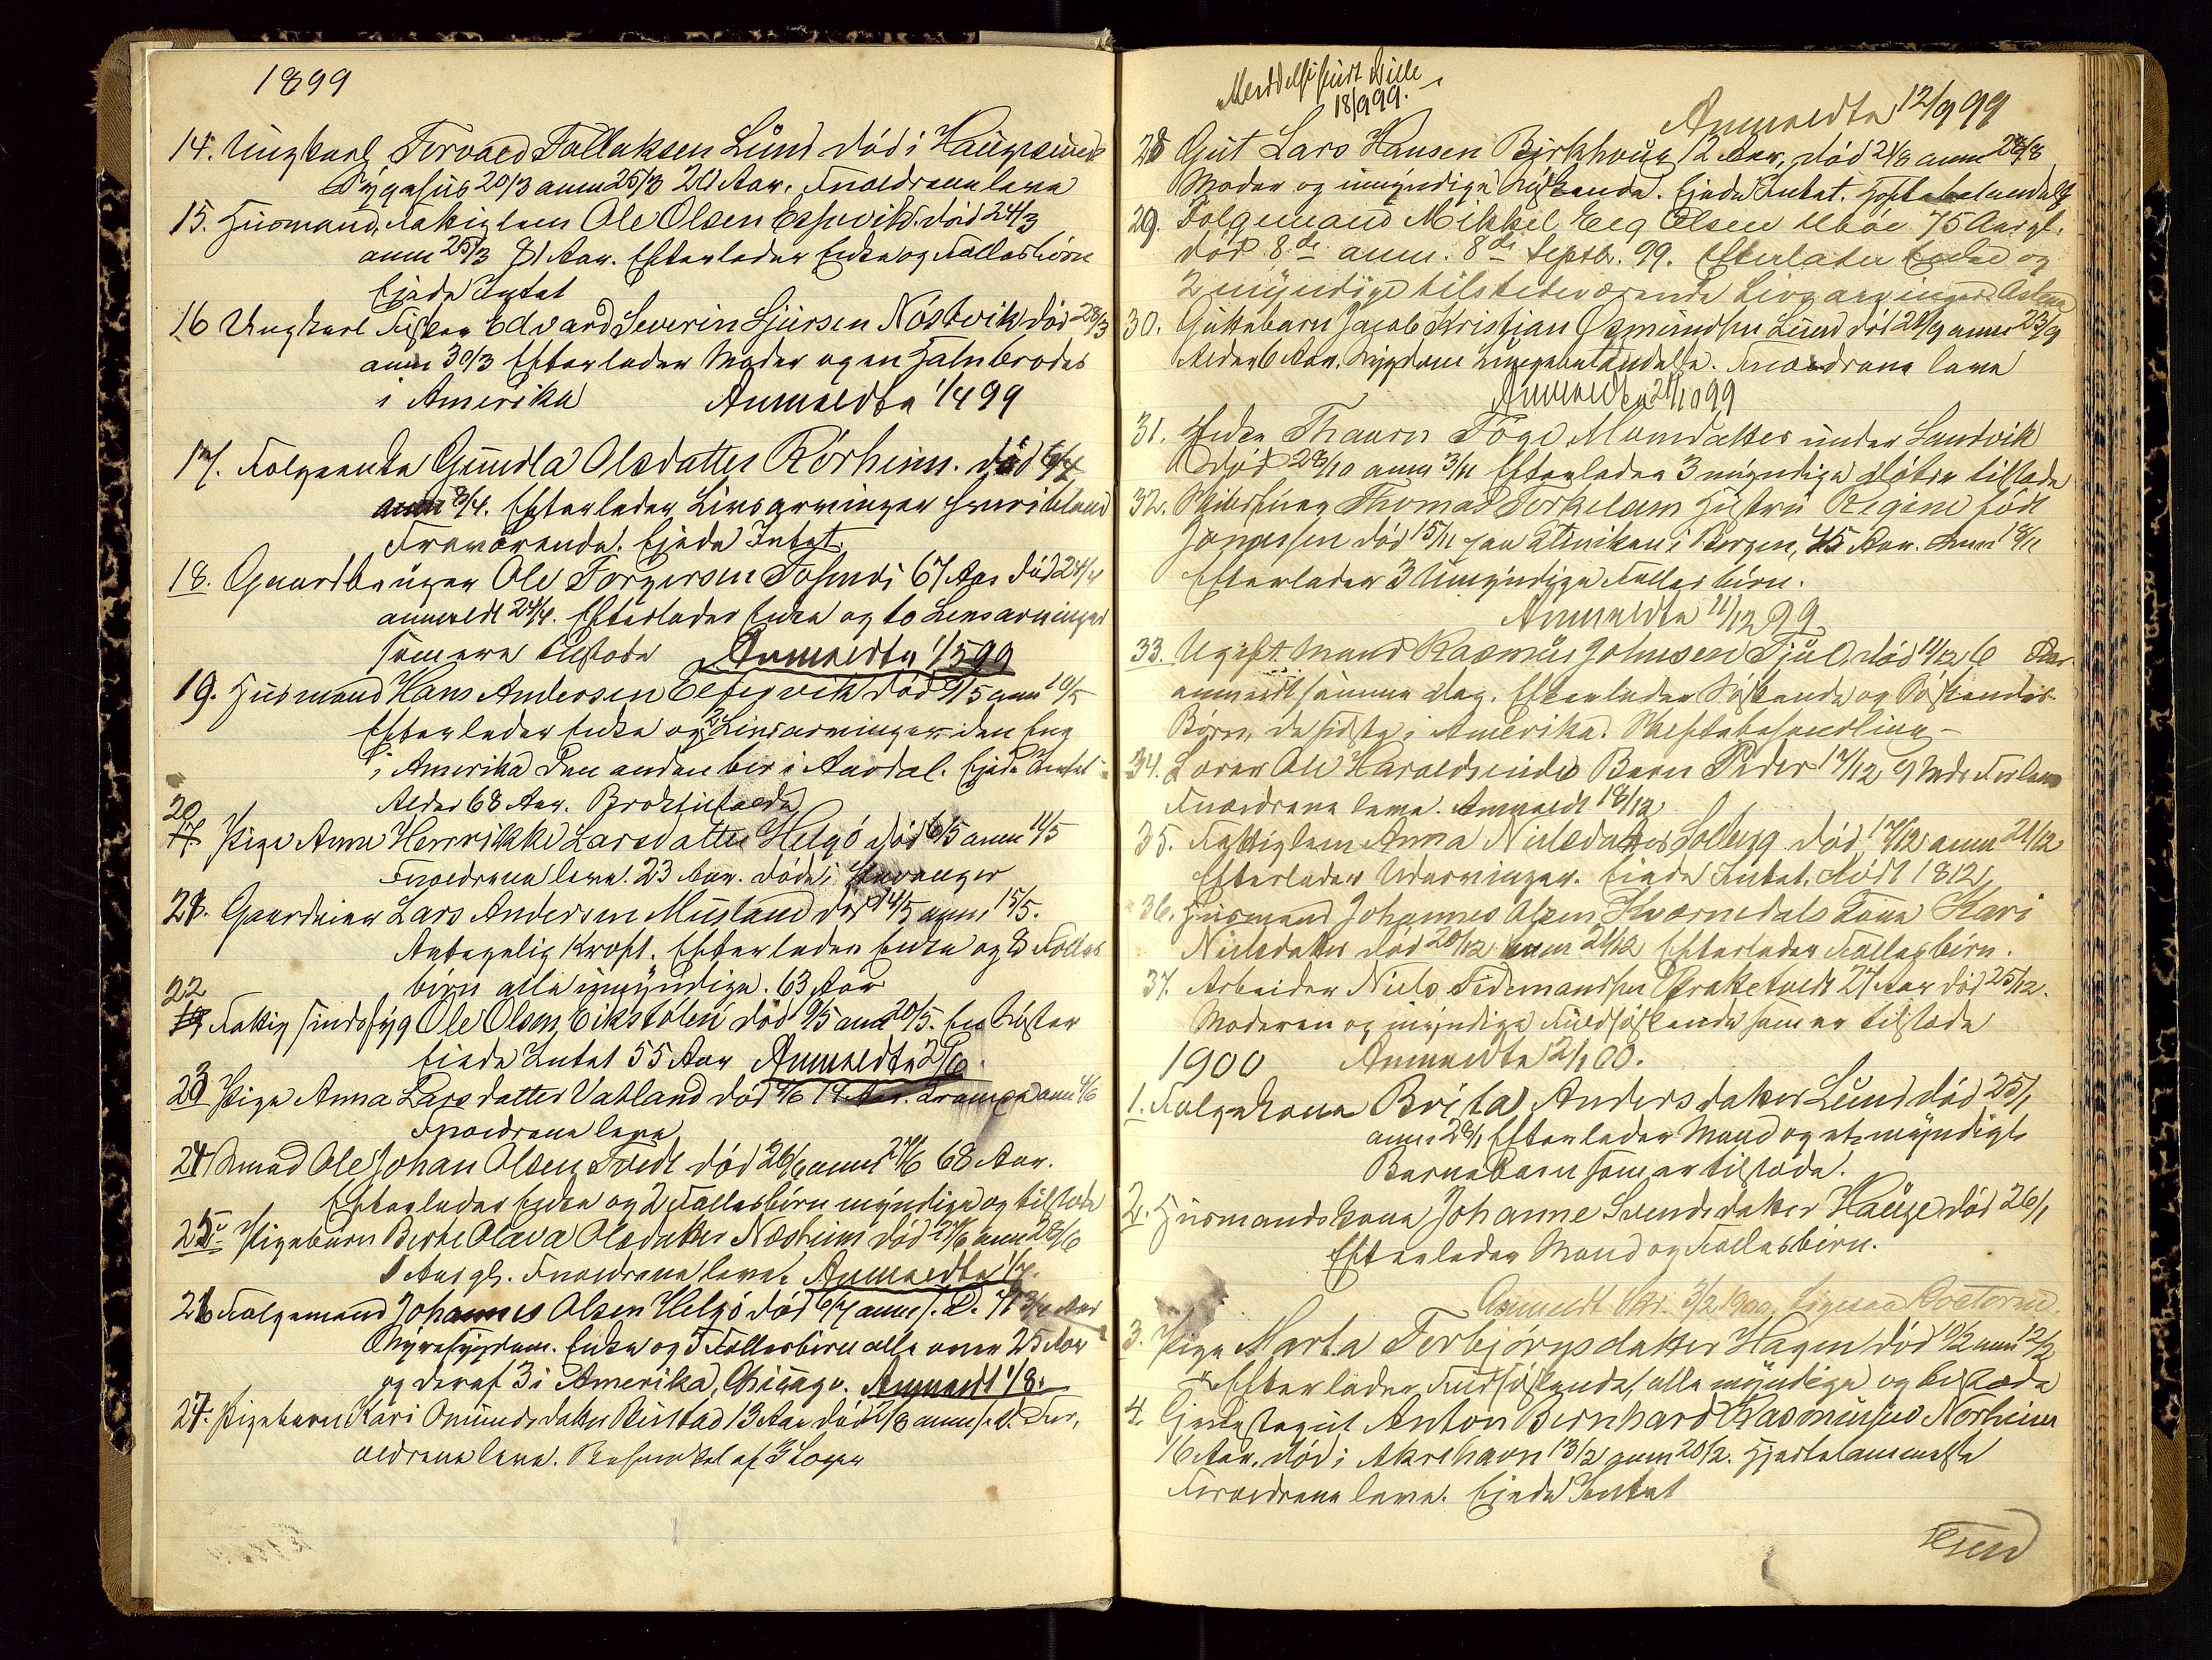 1899
14. Ungkarl Torvald Tollaksen Lund død i Haugesund
Sygehus 20/3 anm 25/3 20 Aar. Forældrene leve
15. Husmand, Fattiglem Ole Olsen død 24/3
anm 25/3 81 Aar. Efterlader Enke og Fællesbörn
Ejede Intet
16 Ungkarl Fisker Edvard Severin Sjursen Nöstvik död 28/3
anm 30/3 Efterlader Moder og en Halvbroder
i Amerika Anmeldte 1/4 99
17. Folgeenke Gundla Olsdatter Rörheim. död 6/4
anm 8/4. Efterlader Livsarvinger
Fraværende. Ejede Intet.
18. Gaardbruger Ole Torgersen 67 Aar död 24/4
anmeldt 24/4. Efterlader Enke og to Livsarvinger
som ere tilstede Anmeldte 1/5 99
19. Husmand Hans Andersen død 9/5 anm 10/5
Efterlader Enke og 2 Livsarvinger den Ene
i Amerika Den anden bor i Aardal. Ejede Intet
Alder 68 Aar.
20 Pige Anne Henrikke Larsdatter Helgö död 6/5 anm 11/5
Forældrene leve. 23 Aar. døde i Stavanger
21. Gaardeier Lars Andersen död 14/5 anm. 15/5.
Antagelig Kræft. Efterlader Enke og 8 Fælles
börn alle umyndige. 63 Aar
22
Fattig sindssyg Ole Olsen Eikstölen död 9/5 anm 20/5. En Söster
Ejede Intet 55 Aar Anmeldte 2/6.
23 Pige Anna Larsdatter Vatland død 2/6 17 Aar. Krampe anm 4/6
Forældrene leve
24 Mand Ole Johan Olsen Tvedt död 26/6 anm 27/6 68 Aar.
Efterlader Enke og 2 Fællesbörn myndige og tilstede
25 Pigebarn Berte Olava Olsdatter Næsheim död 27/6 anm 28/6
1 Aar gl. Forældrene leve. Anmeldte 1/7.
26 Folgemand Johannes Olsen Helgö död 6/7 anm s. D.
Nyresygdom. Enke og 5 Fællesbörn alle over 25 Aar
og deraf 3 i Amerika, Chicago. Anmeldt 1/8.
27. Pigebarn Kari Omundsdatter 13 Aar død 2/8 anm s. D. For,
ældrene leve. af Læge
Meddelt
18/9 99.
Anmeldte 12/9 99
28 Gut Lars Hansen Birkhoug 12 Aar, død 21/8 anm 28/8
Moder og umyndige Söskende. Ejede Intet.
29. Folgemand Mikkel Eeg Olsen 75 Aar gl.
död 8de anm. 8de Septbr. 99. Efterlader Enke og
2 myndige tilstedeværende Livsarvinger
30. Guttebarn Jacob Kristian Osmundsen Lund død 21/9 anm 23/9
Alder 6 Aar. Forældrene leve
Anmeldte 21/10 99
31. Enke Thauru Töge Monsdatter under Sandvik
Død 28/10 anm 3/11 Efterlader 3 myndige Døtre tilstede
32. Thomas Torkelsens Hustru Regine född
død 15/11 paa Kliniken i Bergen, 45 Aar. Anm 18/11
Efterlader 3 Umyndige Fællesbörn.
Anmeldte 11/12 99
33. Ugift Mand Rasmus Johnsen død 14/12 6 Aar
anmeldt samme Dag. Efterlader Söskende og Söskendes
Börn, de sidste i Amerika. Skiftebehandling -
34. Lærer Ole Barn Peder 17/12 9 Mdr Forlem
Forældrene leve. Anmeldt 18/12
35. Fattiglem Anna Nielsdatter Solberg død 17/12 anm 21/12
Efterlader Udarvinger. Ejede Intet, Född 1812,
36. Husmand Johannes Olsen Kvernedals Kone Kari
Nielsdatter død 20/12 anm 21/12 Efterlader Fællesbörn.
37. Arbeider Niels Tidemandsen Braketvedt 27 Aar død 25/12.
Moderen og myndige Fuldsöskende som er tilstede
1900 Anmeldte 2/1 00.
1. Folgekone Brita Andersdatter Lund död 25/1
anm 28/1 Efterlader Mand og et myndigt
Barnebarn som er tilstede.
2. Husmandskone Johanne Svendsdatter Hauge død 26/1
Efterlader Mand og Fællesbörn.
Anmeldt Skr. 3/2 1900, ligesaa
3. Pige Marta Torbjörnsdatter Hagen död 10/2 anm 12/2
Efterlader Fuldsöskende, alle myndige og tilstede
4. Anton Bernhard Rasmussen Norheim
16 Aar, död i Akrehavn 13/2 anm 20/2. Hjertelammelse
Forældrene leve. Ejede Intet